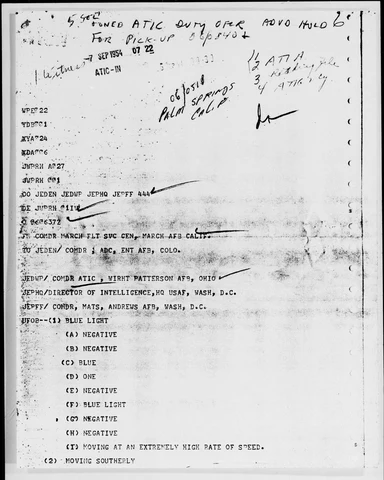 5 SEC
FONED ATIC DUTY OFER ADVD HOLD
FOR PICK-UP 060840Z
1 Witness
7 SEP 1954 07 22
ATIC-IN
1 ATIA
2
3 Reading file
4 ATIAE
06/0518
PALM SPRINGS
CALIF
WPEP22
YDB
XYA 24
KDA
JWPRH A 27
JWPRH 001
OO JEDEN JEDWP JEPHQ JEPFF 444
DE JWPRH 01
O 060637Z
FM COMDR MARCH FLT SVC CEN, MARCH AFB CALIF.
TO JEDEN/ COMDR , ADC, ENT AFB, COLO.
JEDWP/ COMDR ATIC , WIRHT PATTERSON AFB, OHIO
JEPHQ/DIRECTOR OF INTELLIGENCE,HQ USAF, WASH, D.C.
JEPFF/ COMDR, MATS, ANDREWS AFB, WASH, D.C.
UFOB--(1) BLUE LIGHT
(A) NEGATIVE
(B) NEGATIVE
(C) BLUE
(D) ONE
(E) NEGATIVE
(F) BLUE LIGHT
(G) NEGATIVE
(H) NEGATIVE
(I) MOVING AT AN EXTREMELY HIGH RATE OF SPEED.
(2) MOVING SOUTHERLY